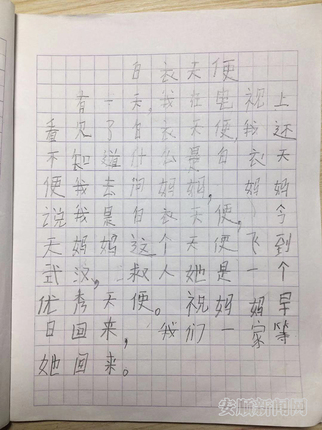 白衣天便
有一天,我在电视上
看见了白衣天便,我还
不知道什么是白衣天
便我去问妈妈,妈妈
说我是白衣天便。今
天妈妈这个天便飞到
武汉,救人她是一个
优秀天便。祝妈妈早
日回来,我们一家等
她回来。
安顺新闻网